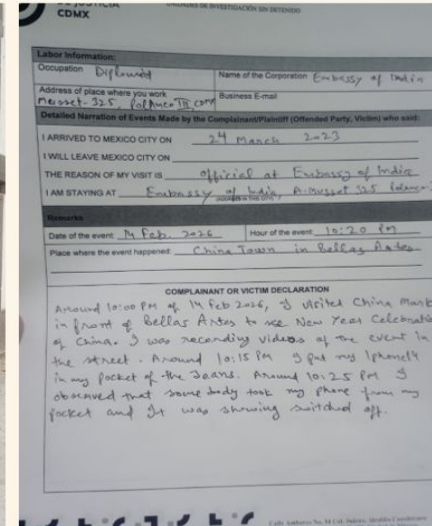 CDMX
UNIDADES DE INVESTIGACIÓN SIN DETENIDO
Labor Information:
Occupation Diplomat
Name of the Corporation Embassy of India
Address of place where you work
Musset-325, Polanco III, CDMX
Business E-mail
Detailed Narration of Events Made by the Complainant/Plaintiff (Offended Party, Victim) who said:
I ARRIVED TO MEXICO CITY ON 24 March 2023
I WILL LEAVE MEXICO CITY ON
THE REASON OF MY VISIT IS official at Embassy of India
I AM STAYING AT Embassy of India, A. Musset 325 Polanco
Remarks
Date of the event: 14 Feb. 2026 Hour of the event: 10:20 PM
Place where the event happened: China Town in Bellas Artes
COMPLAINANT OR VICTIM DECLARATION
Around 10:00 PM of 14 Feb 2026, I visited China Mark
in front of Bellas Artes to see New Year Celebrati
of China. I was recording videos of the event in
the street. Around 10:15 PM I put my Iphone14
in my Pocket of the Jeans. Around 10:25 PM I
observed that some body took my phone from my
pocket and It was showing switched off.